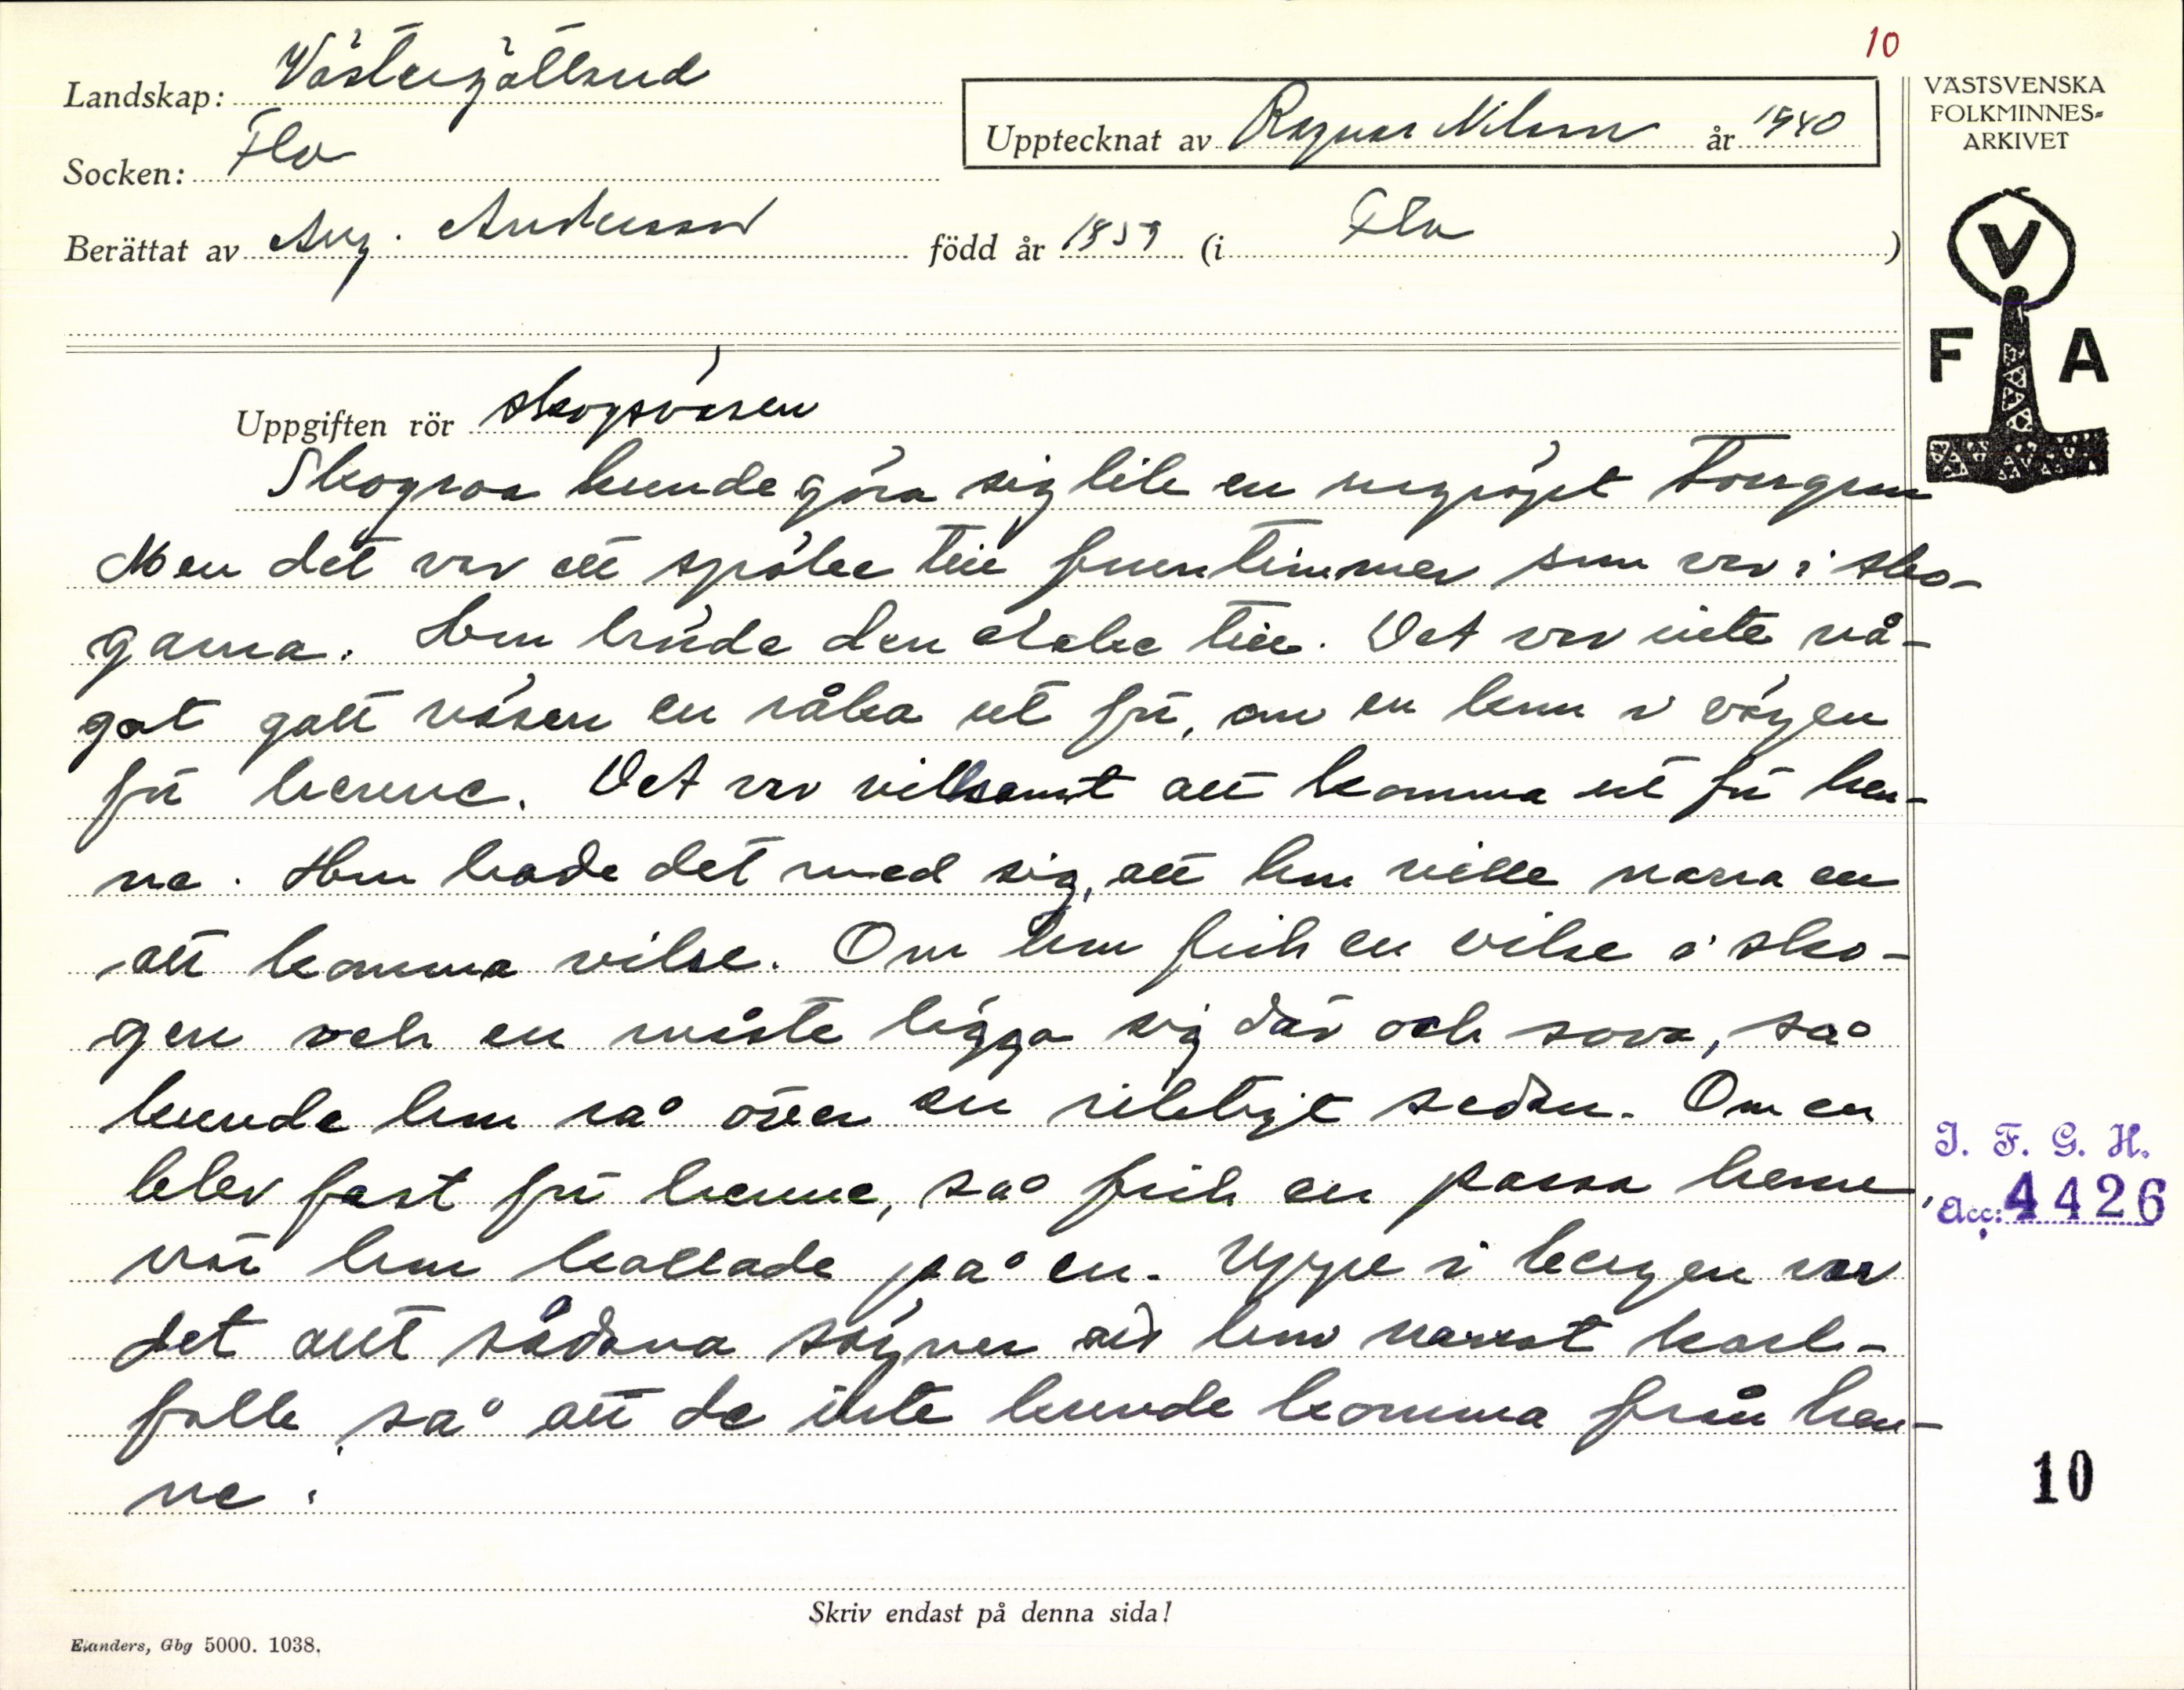 10
Landskap: Västergötland
Upptecknat av Ragnar Nilsson år 1940
VÄSTSVENSKA
FOLKMINNES=
ARKIVET
Socken: Flo
Berättat av Aug. Andersson född år 1859 (i Flo )
V
F A
Uppgiften rör skogsväsen
Skogsråa kunde göra sig lik en
Men det var ett spöke till fruntimmer som var i sko-
garna. Hon levde den tiden. Det var inte nå-
got gott väsen en råka ut för, om en kom i vägen
för henne. Det var vilksamt att komma ut för hen-
ne. Hon hade det med sig, att hon ville narra en
att komma vilse. Om hon fick en vilse i sko-
gen och en måste lägga sig där och sova, så
kunde hon rå över en riktigt sedan. Om en
blev fast för henne, så fick en passa henne,
när hon kallade på en. Uppe i bergen var
det allt sådana sägner att hon narrat karl-
folk så att de inte kunde komma från hen-
ne.
I. F. G. H.
Acc: 4426
10
Skriv endast på denna sida!
Elanders, Gbg 5000. 1038.